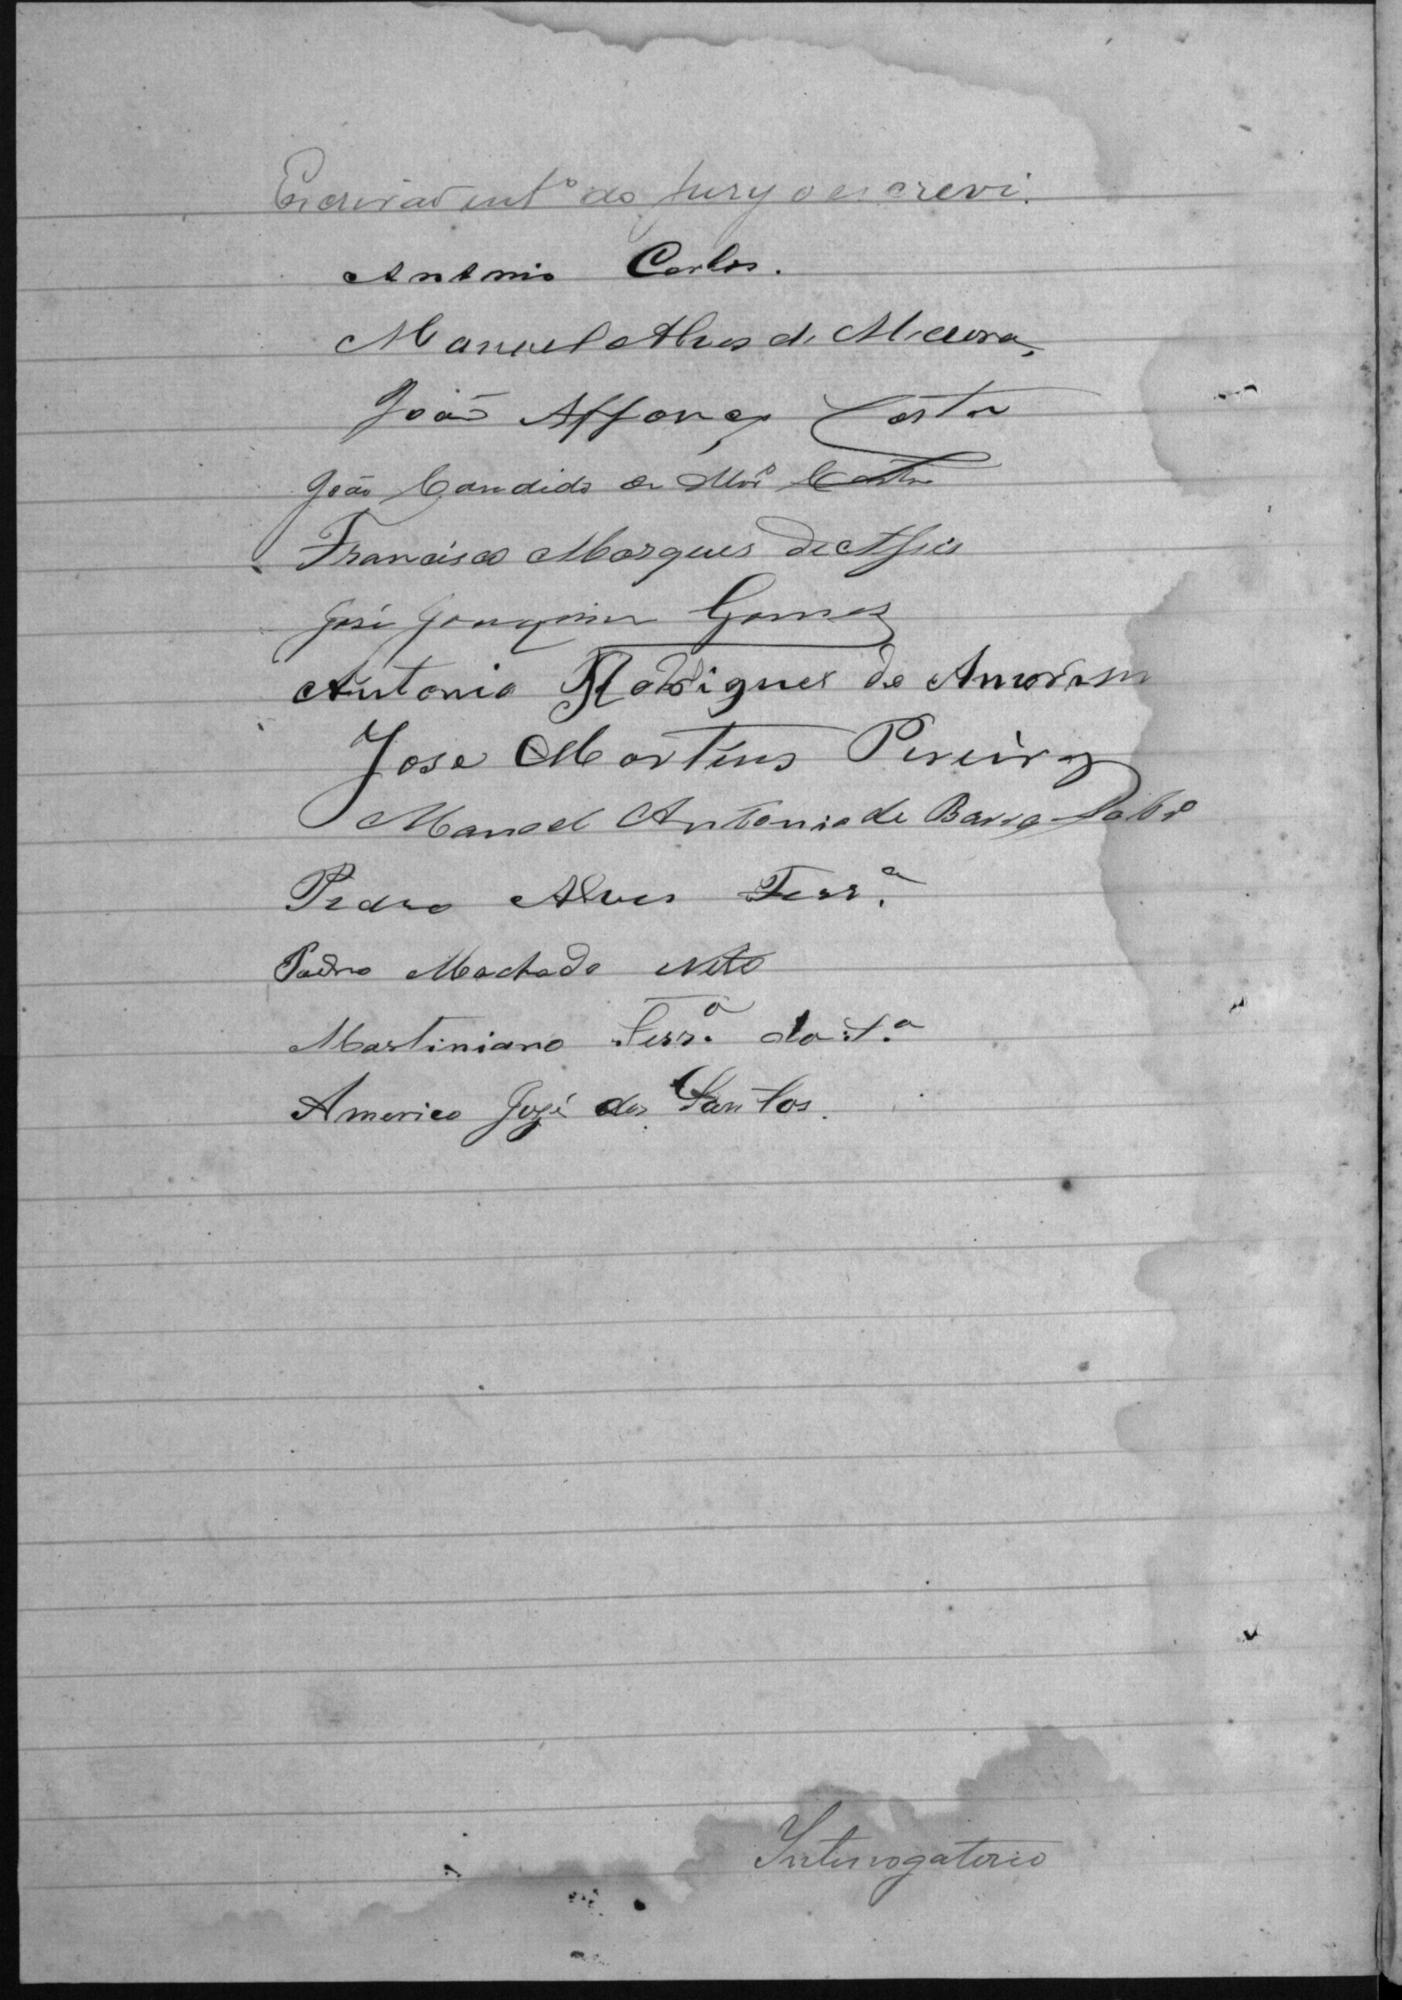 Escrivão int.º do Jury o escrevi.
Antonio Carlos.
Manoel Alves de
João Affonço Costa
João Candido de Mor.º Castro
Francisco Marques de Assis
José Joaquim Gomes
Antonio Rodrigues de Amorim
Jose Martins Pereira
Manoel Antonio de Barros
Pedro Alves Ferr.ª
Pedro Machado Neto
Martiniano Ferr.ª da
Americo José dos Santos.
Interrogatorio